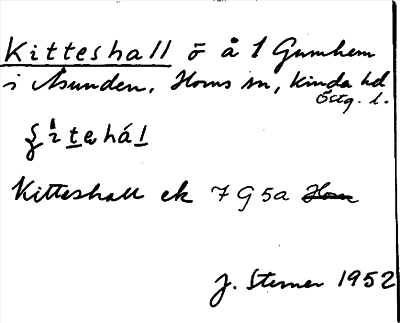 Kitteshall ö å 1 Gumhem
i Åsunden, Horns sn, Kinda hd
Östg. l.
Kitteshall ek 7G5a
J. Sterner 1952